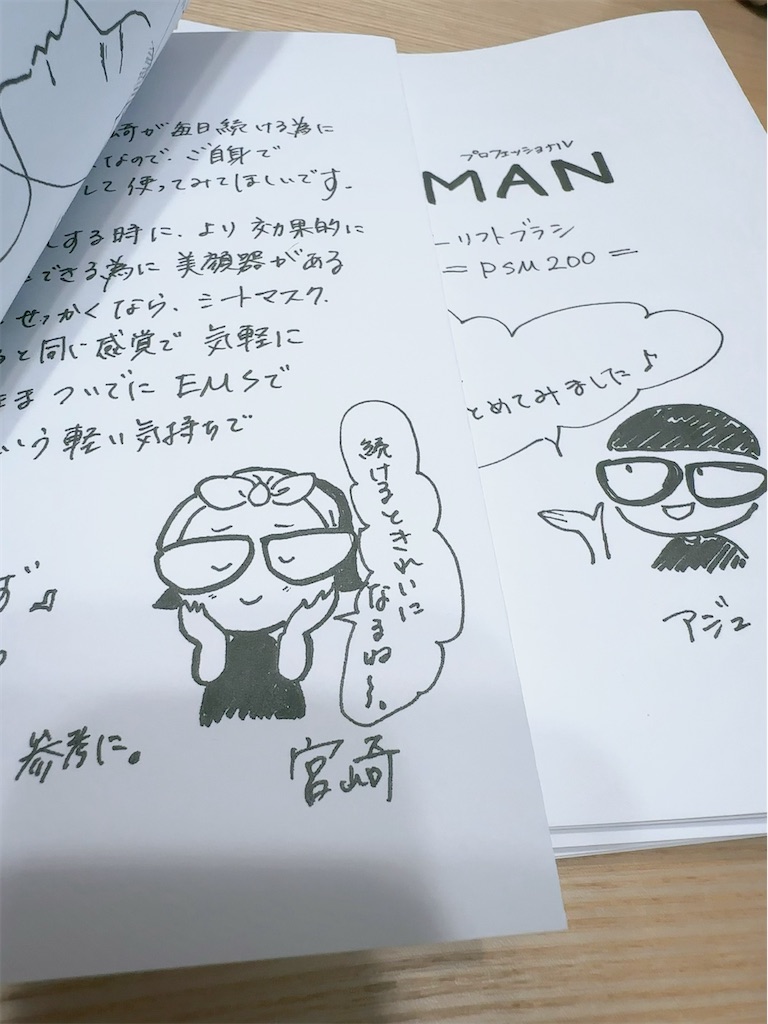 崎が毎日続ける為に
なので、ご自身で
して使ってみてほしいです。
する時に、より効果的に
できる為に美顔器がある
せっかくなら、シートマスク
と同じ感覚で気軽に
まま ついでに EMSで
いう軽い気持ちで
続けるときれいに
なるね〜。
参考に。
宮崎
プロフェッショナル
MAN
ーリフトブラシ
= PSM200 =
とめてみました♪
アジュ